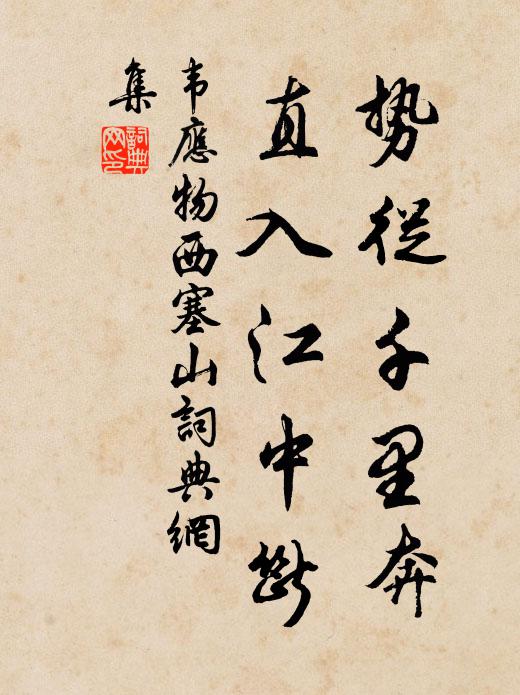 勢從千里奔
直入江中斷
韦應物西塞山詞典網
集
詞典网印